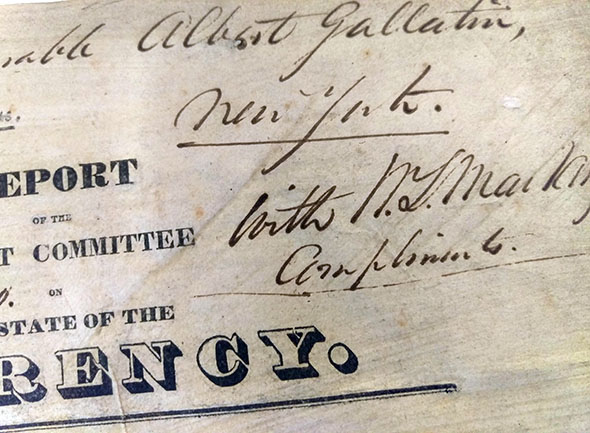 rable Albert Gallatin,
New York.
ts.
EPORT
OF THE
T COMMITTEE
ON
STATE OF THE
RENCY.
With W. L. Mac
Compliments.